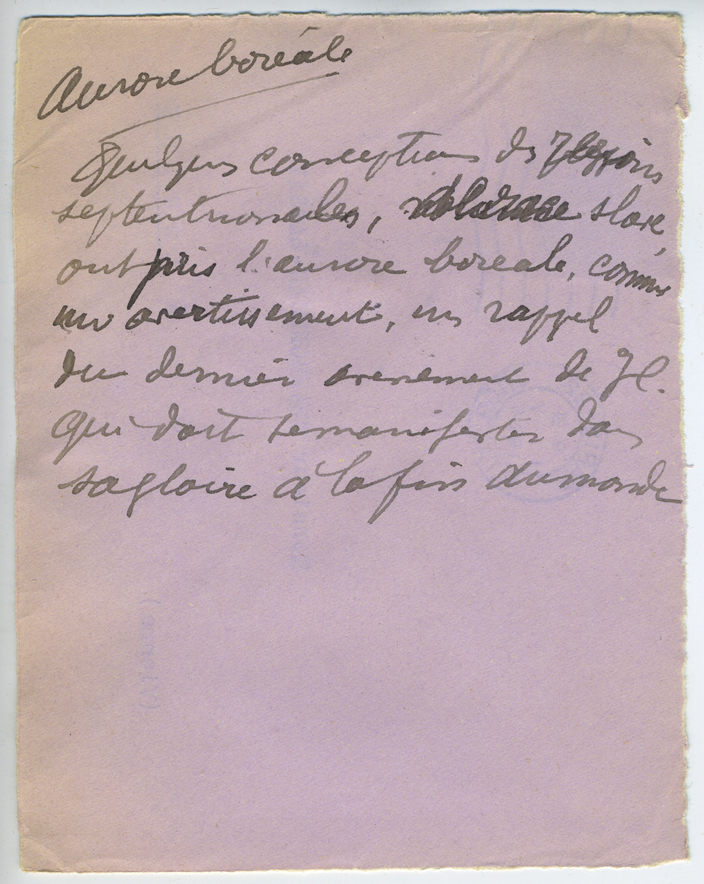 Aurore boréale
Quelques conceptions des régions
septentrionales, slave,
ont pris l'aurore boreale, comme
un avertissement, un rappel
du dernier avenement de JC.
qui doit se manifester dans
sa gloire à la fin du monde